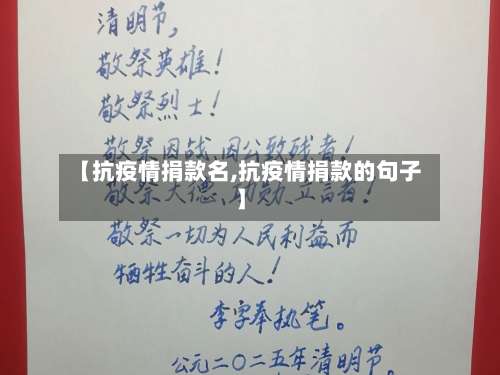 清明节,
敬祭英雄!
敬祭烈士!
敬祭因战、因公致残者!
【抗疫情捐款名,抗疫情捐款的句子
】
敬祭大德、功勋、立言者!
敬祭一切为人民利益而
牺牲奋斗的人!
李字奉执笔。
公元二〇二五年清明节。